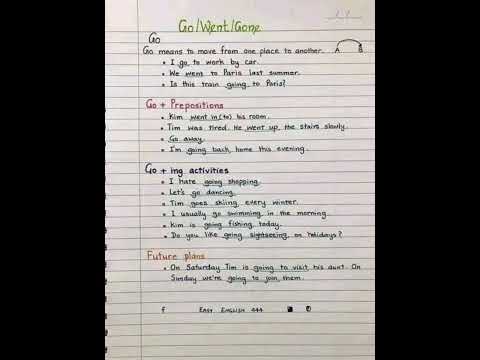 Go/Went/Gone
Go
Go means to move from one place to another. A B
• I go to work by car.
• We went to Paris last summer.
• Is this train going to Paris?
Go + Prepositions
• Kim went in(to) his room.
• Tim was tired. He went up the stairs slowly.
• Go away.
• I'm going back home this evening.
Go + ing activities
• I hate going shopping.
• Let's go dancing.
• Tim goes skiing every winter.
• I usually go swimming in the morning.
• Kim is going fishing today.
• Do you like going sightseeing on holidays?
Future plans
• On Saturday Tim is going to visit his aunt. On
Sunday we're going to join them.
f EASY ENGLISH 444